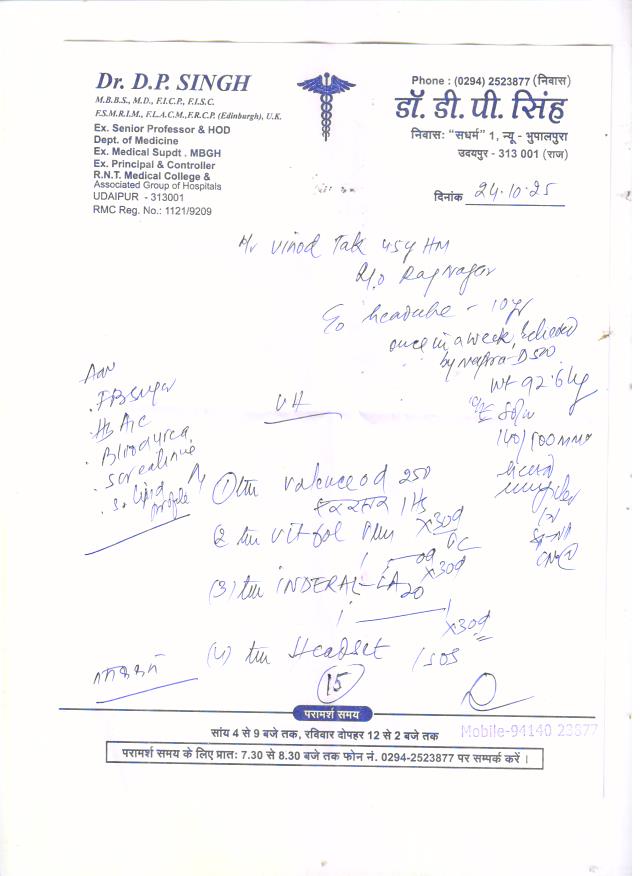 Dr. D.P. SINGH
M.B.B.S., M.D., F.I.C.P., F.I.S.C.
F.S.M.R.I.M., F.L.A.C.M.,F.R.C.P. (Edinburgh), U.K.
Ex. Senior Professor & HOD
Dept. of Medicine
Ex. Medical Supdt . MBGH
Ex. Principal & Controller
R.N.T. Medical College &
Associated Group of Hospitals
UDAIPUR - 313001
RMC Reg. No.: 1121/9209
Phone : (0294) 2523877 (निवास)
डॉ. डी. पी. सिंह
निवासः "सधर्म" 1, न्यू - भुपालपुरा
उदयपुर - 313 001 (राज)
दिनांक 24.10.25
Mr Vinod Tak 45y HM
R/o Raj Nagar
C/o headache - 10yr
once in a week, relieved
by Napra-D 500
Wt 92.6 kg
80/m
140/100 mm
Adv
FB Sugar
Hb A1c
Blood urea
S creatinine
S. lipid profile
VH
① 250
1 Hs
x30d
② Plus
x30d
(3) INDERAL-LA 20
x30d
(4) Headset 1 SOS
15
परामर्श समय
सांय 4 से 9 बजे तक, रविवार दोपहर 12 से 2 बजे तक
Mobile-94140 23877
परामर्श समय के लिए प्रातः 7.30 से 8.30 बजे तक फोन नं. 0294-2523877 पर सम्पर्क करें ।